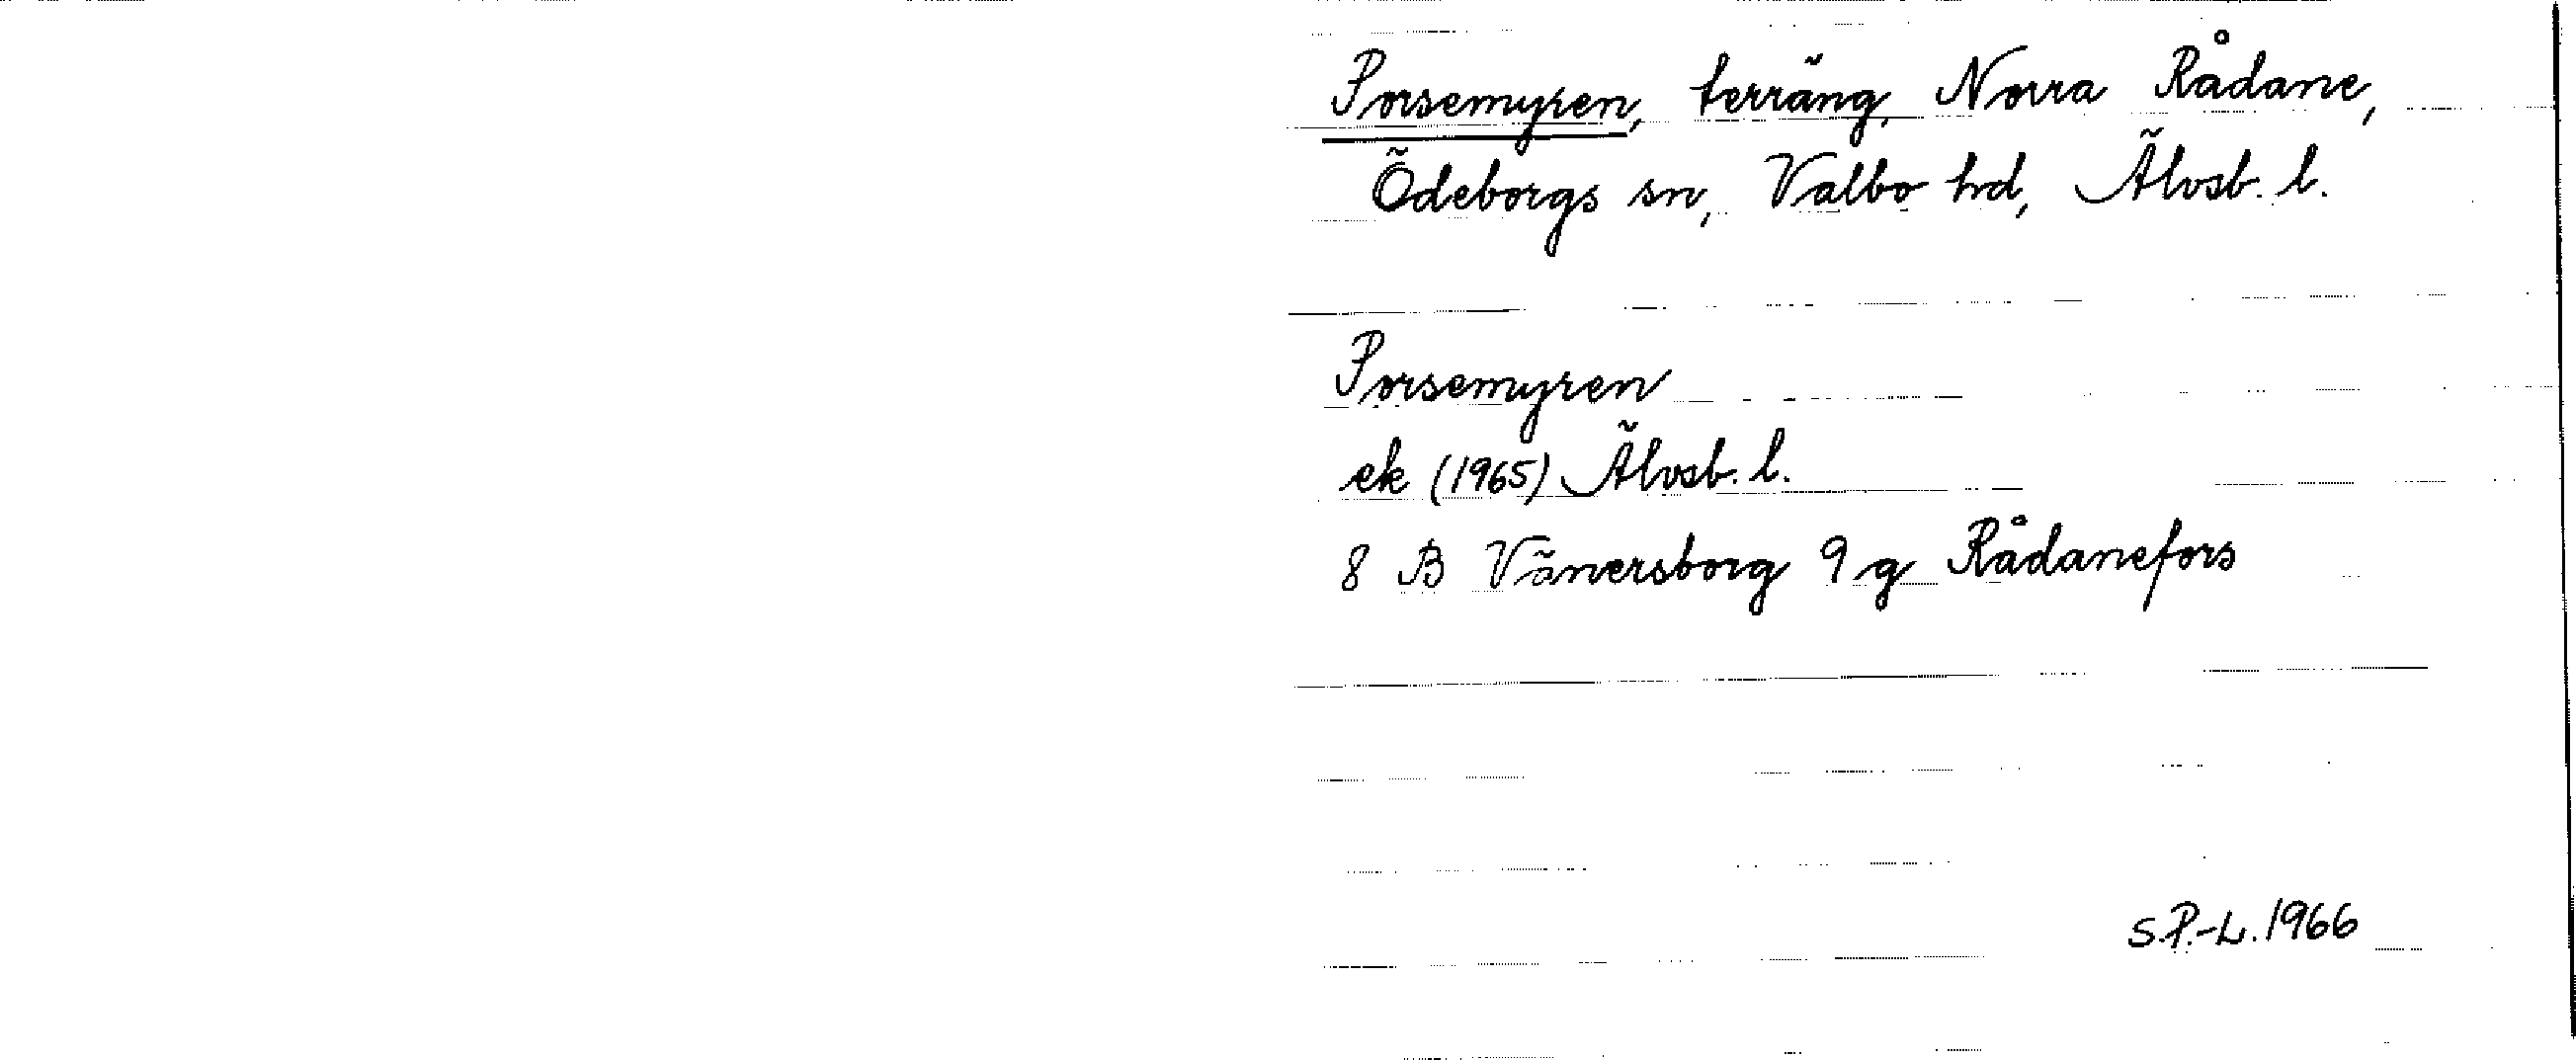 Porsemyren, terräng, Norra Rådane,
Ödeborgs sn, Valbo hd, Älvsb. l.
Porsemyren
ek (1965) Älvsb. l.
8 B Vänersborg 9 g Rådanefors
S.P.-L. 1966